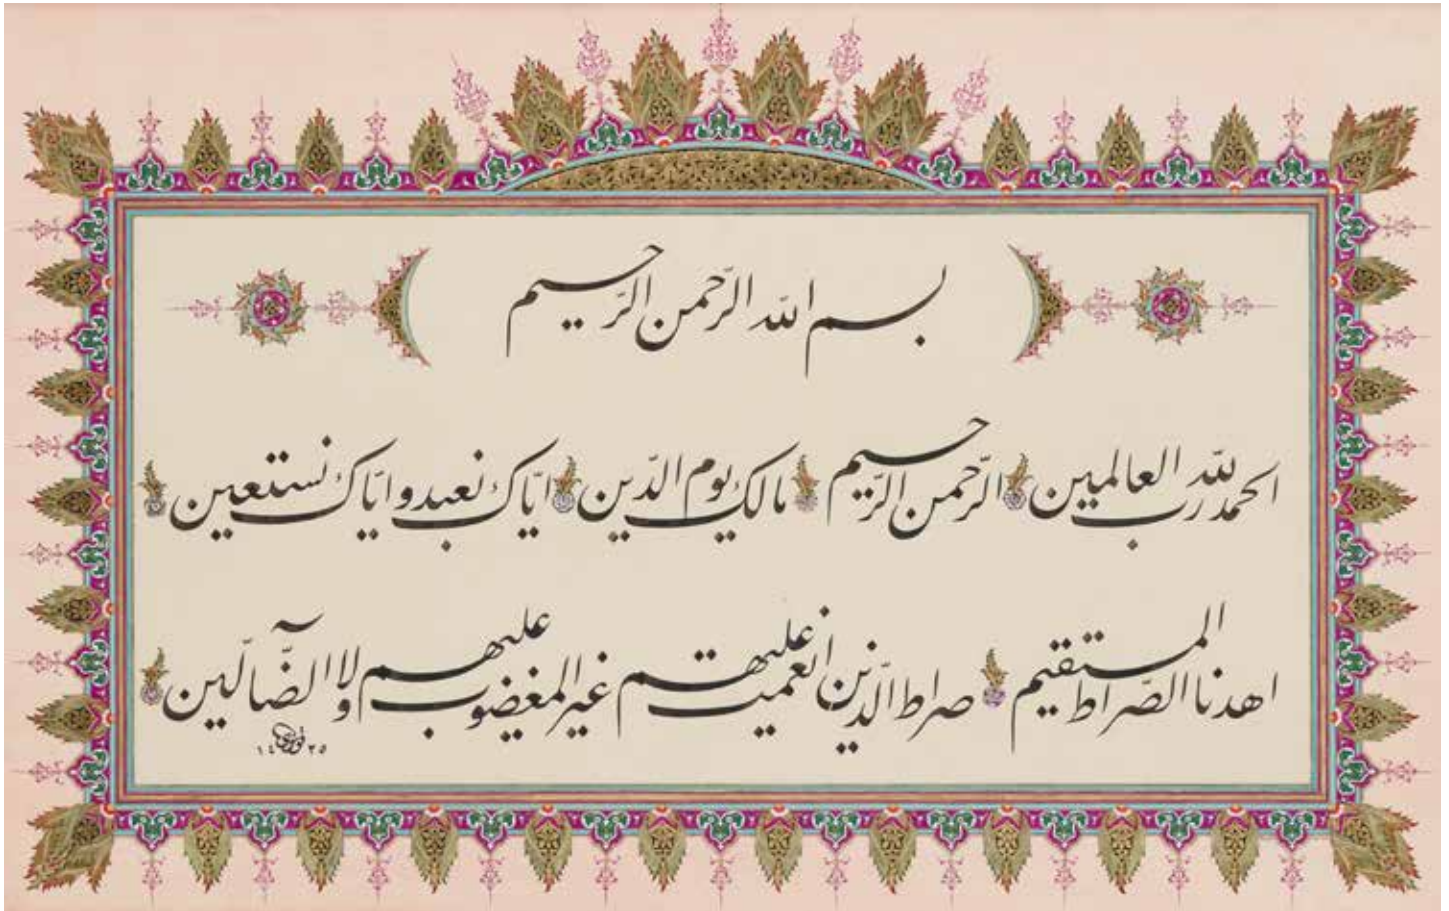 بسم الله الرّحمن الرّحيم
الحمد لله رب العالمين الرّحمن الرّحيم مالك يوم الدّين ايّاك نعبد و ايّاك نستعين
اهدنا الصّراط المستقيم صراط الّذين انعمت عليهم غير المغضوب عليهم ولا الضّآلّين
١٤٣٥